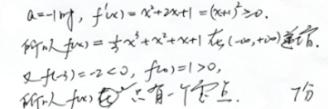 a=-1时, f'(x)=x²+2x+1=(x+1)²≥0.
所以 f(x)=⅓x³+x²+x+1 在(-∞,+∞)递增.
又 f(-3)=-2<0, f(0)=1>0,
所以 f(x) 只有一个零点. 7分